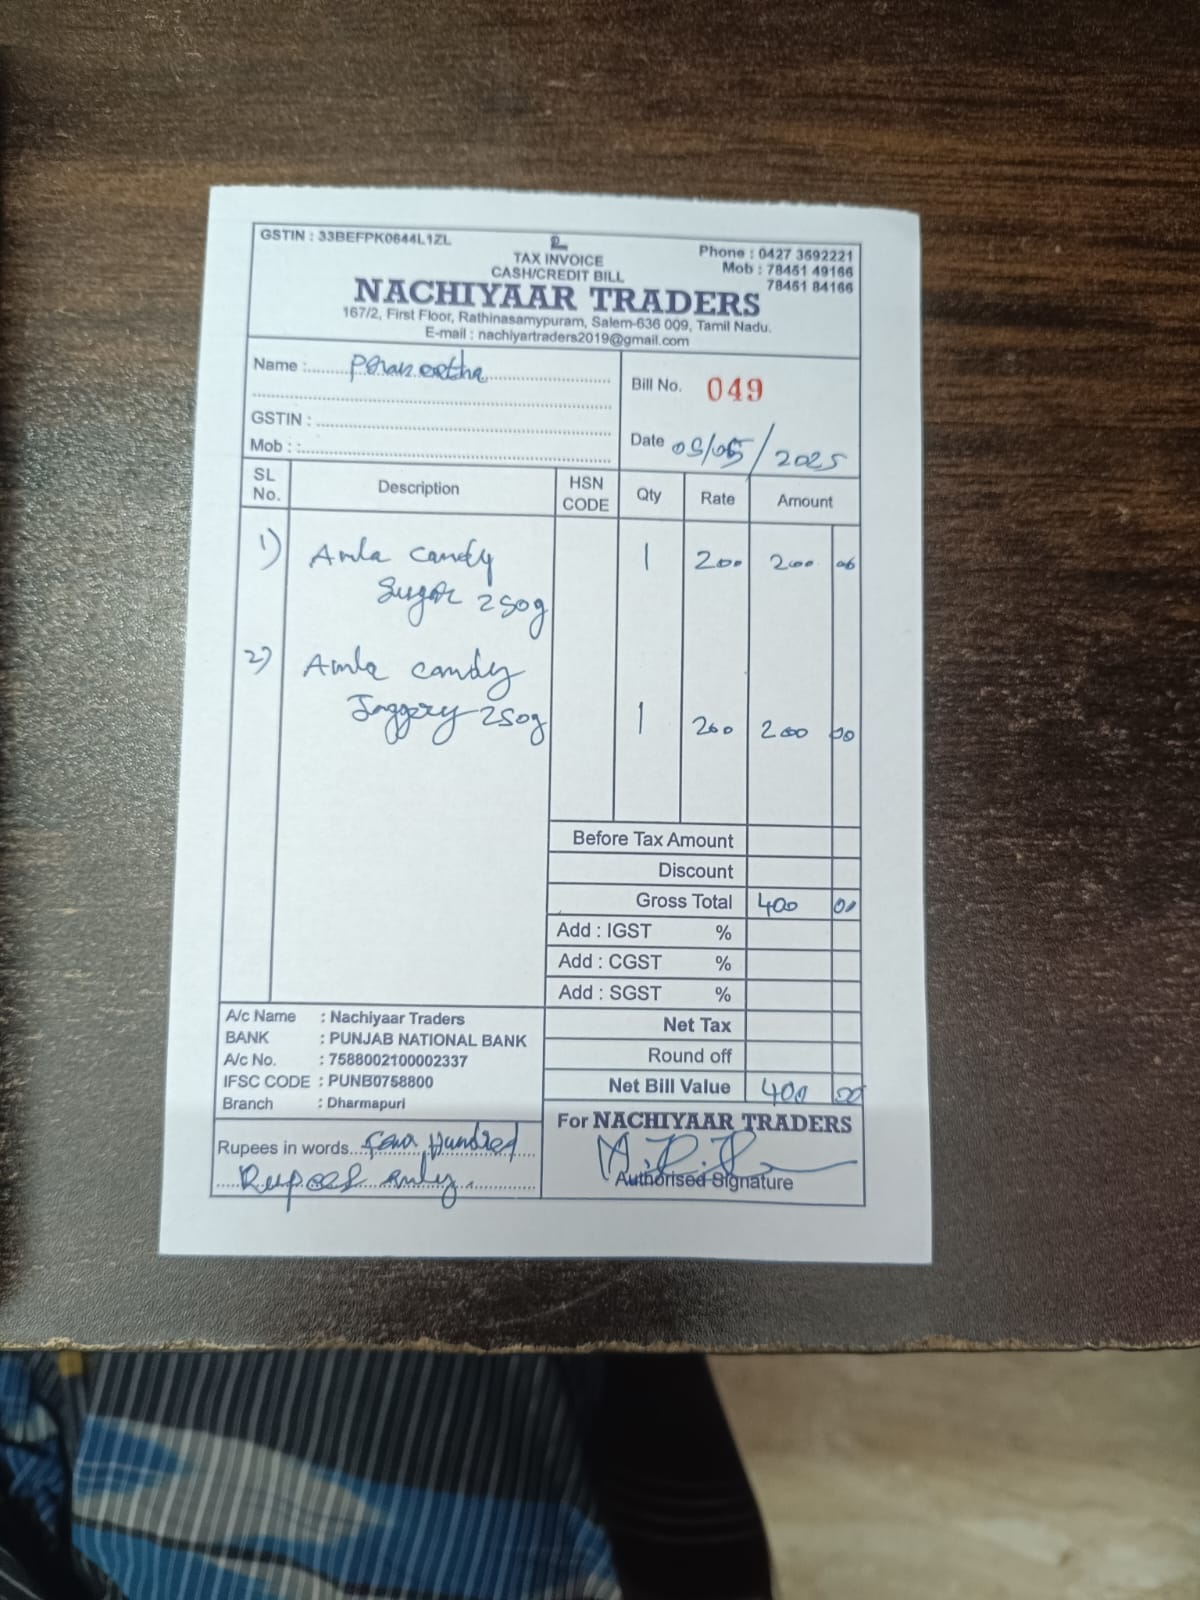 GSTIN : 33BEFPK0644L1ZL
TAX INVOICE
CASH/CREDIT BILL
Phone : 0427 3592221
Mob : 78451 49166
78451 84166
NACHIYAAR TRADERS
167/2, First Floor, Rathinasamypuram, Salem-636 009, Tamil Nadu.
E-mail : nachiyartraders2019@gmail.com
Name :
Bill No. 049
GSTIN :
Mob : :
Date 05/05/2025
SL No. Description HSN CODE Qty Rate Amount
1) Amla candy 1 200 200 00
Sugar 250g
2) Amla candy
Jaggery 250g 1 200 200 00
Before Tax Amount
Discount
Gross Total 400 00
Add : IGST %
Add : CGST %
Add : SGST %
Net Tax
Round off
Net Bill Value 400 00
A/c Name : Nachiyaar Traders
BANK : PUNJAB NATIONAL BANK
A/c No. : 7588002100002337
IFSC CODE : PUNB0758800
Branch : Dharmapuri
Rupees in words Four Hundred
Rupees only.
For NACHIYAAR TRADERS
Authorised Signature